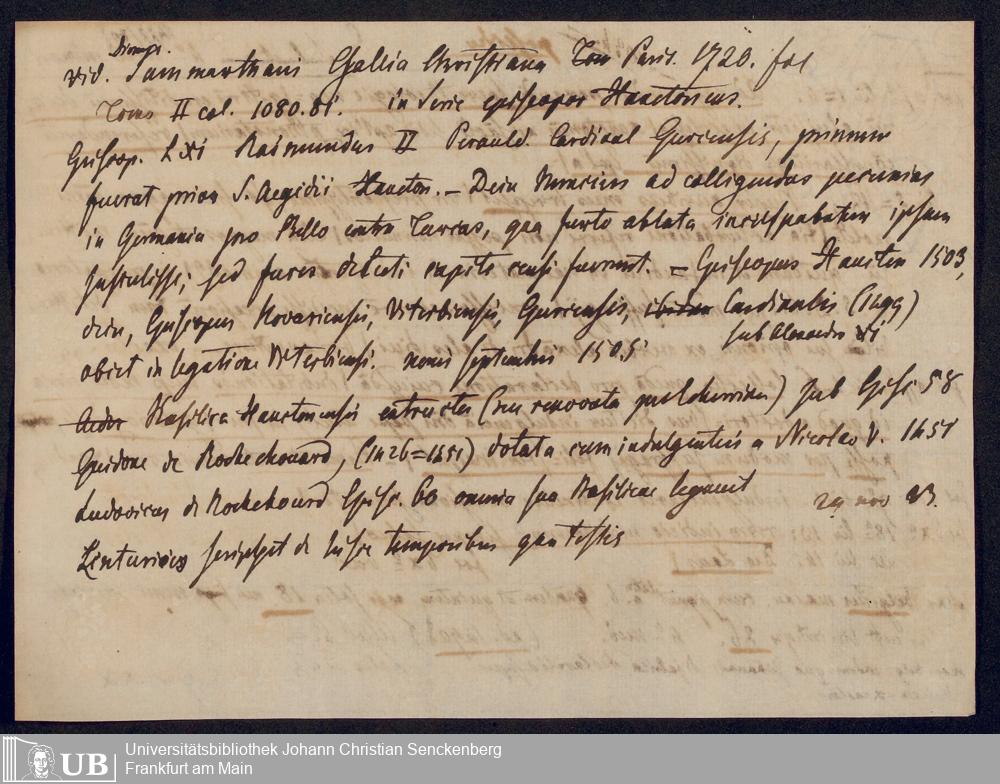 Dionys.
vid. Sammarthani Gallia Christiana Tom Paris. 1720. fol
Tomo II col. 1080.81. in Serie episcopor Xanctonicus.
Episcop. LXI Raimundus II Perauld. Cardinal Gurcensis, primum
fuerat prior S. Aegidii Xancton. – Dein Nuncius ad colligendas pecunias
in Germania pro Bello contra Turcas, qua furto ablata increpabatur ipsum
sustulisse; sed fures detecti capite censi fuerunt. – Episcopus Xancton 1503,
dein, Episcopus Novariensis, Viterbiensis, Gurcensis, Cardinalis (1499)
sub Alexandro VI
obiet in legatione Viterbiensi. nonis septembris 1505
Basilica Xanctonensis extructa (seu renovata pulcherrima) sub Episc 58
Guidone de Rochechouard, (1426=1451) dotata cum indulgentiis a Nicolao V. 1451
Ludovicus de Rochehouard Episc. 60 omnia sua Basilicae legavit
29 nov 93.
scripsit de temporibus qua testis
Universitätsbibliothek Johann Christian Senckenberg
Frankfurt am Main
UB